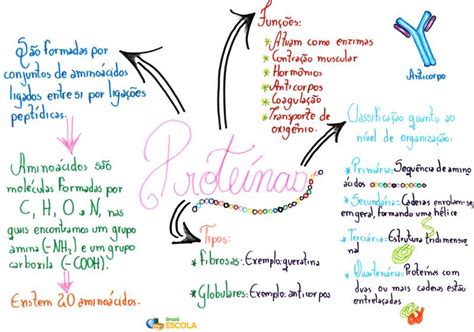 São formadas por
conjuntos de aminoácidos
ligados entre si por ligações
peptídicas.
Aminoácidos são
moléculas formadas por
C, H, O e N, nas
quais encontramos um grupo
amina (-NH₂) e um grupo
carboxila (-COOH).
Existem 20 aminoácidos.
Proteínas
Funções:
* Atuam como enzimas
* Contração muscular
* Hormônios
* Anticorpos
* Coagulação
* Transporte de
oxigênio.
Anticorpo
Classificação quanto ao
nível de organização:
* Primária: Sequência de amino
ácidos
* Secundária: Cadeias enrolam-se,
em geral, formando uma hélice
* Terciária: Estrutura tridimensio
nal
* Quaternária: Proteínas com
duas ou mais cadeias estão
entrelaçadas
Tipos:
* Fibrosas: Exemplo: queratina
* Globulares: Exemplo: anticorpos
Brasil
ESCOLA